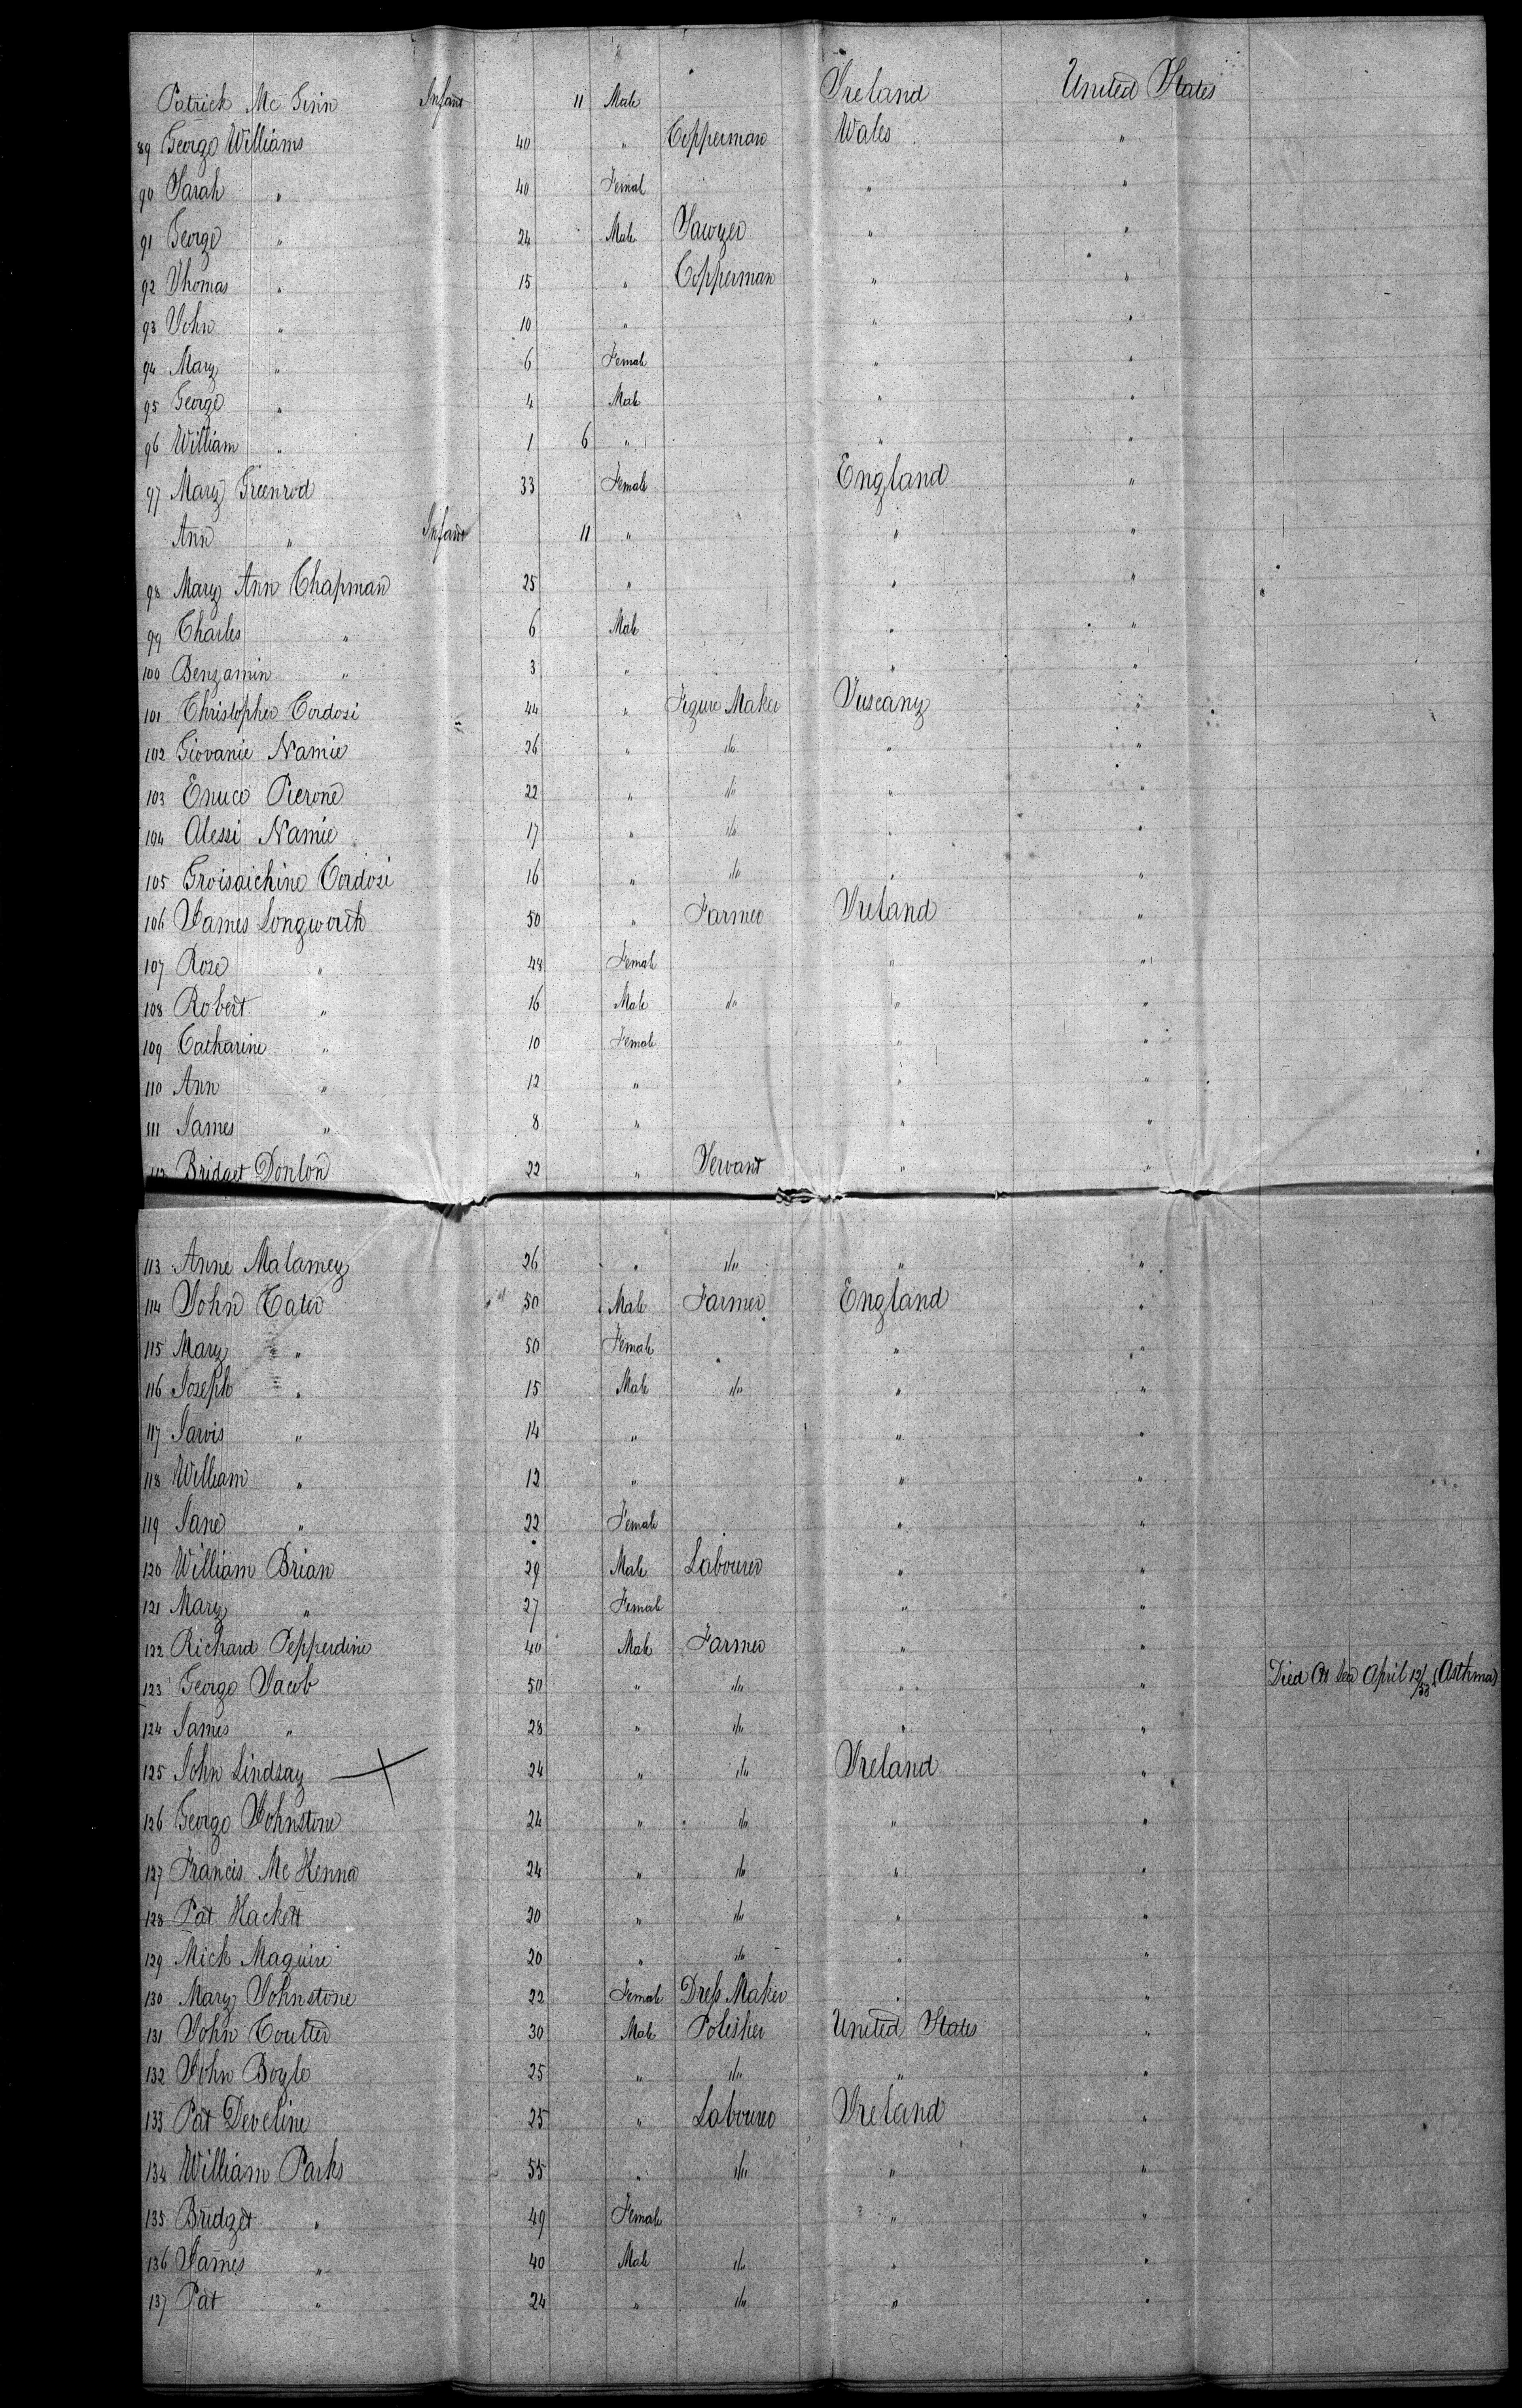 Patrick Mc Ginn Infant 11 Male Ireland United States
89 George Williams 40 " Copperman Wales "
90 Sarah " 40 Femal " "
91 George " 24 Male Sawyer " "
92 Thomas " 15 " Copperman " "
93 John " 10 " " "
94 Mary " 6 Female " "
95 George " 4 Male " "
96 William " 1 6 " " "
97 Mary Greenrod 33 Female England "
Ann " Infant 11 " " "
98 Mary Ann Chapman 25 " " "
99 Charles " 6 Male " "
100 Benjamin " 3 " " "
101 Christopher Cordosi 44 " Figure Maker Tuscany "
102 Giovanie Namie 26 " do " "
103 Pierone 22 " do " "
104 Alessi Namie 17 " do " "
105 Cordosi 16 " do " "
106 James Longworth 50 " Farmer Ireland "
107 Rose " 48 Female " "
108 Robert " 16 Male do " "
109 Catharine " 10 Female " "
110 Ann " 12 " " "
111 James " 8 " " "
112 Bridget Donlon 22 " Servant " "
113 Anne Malamey 26 " do " "
114 John Cater 50 Male Farmer England "
115 Mary " 50 Female " "
116 Joseph " 15 Male do " "
117 Jarvis " 14 " " "
118 William " 12 " " "
119 Jane " 22 Female " "
120 William Brian 29 Male Labourer " "
121 Mary " 27 Female " "
122 Richard Pepperdine 40 Male Farmer " "
123 George Jacob 50 " do " " Died At Sea April 12/53 (Asthma)
124 James " 28 " do " "
125 John Lindsay 24 " do Ireland "
126 George Johnstone 24 " do " "
127 Francis Mc Kenna 24 " do " "
128 Pat Hackett 20 " do " "
129 Mick Maguire 20 " do " "
130 Mary Johnstone 22 Female Dress Maker " "
131 John Coulter 30 Male Polisher United States "
132 John Boyle 25 " do " "
133 Pat Develine 25 " Labourer Ireland "
134 William Parks 55 " do " "
135 Bridget " 49 Female " "
136 James " 40 Male do " "
137 Pat " 24 " do " "